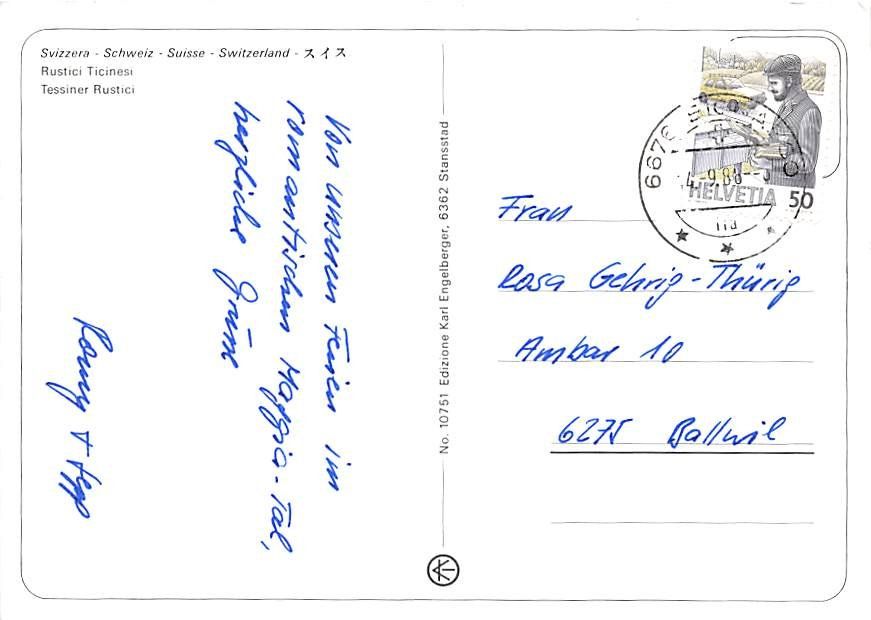 Svizzera - Schweiz - Suisse - Switzerland - スイス
Rustici Ticinesi
Tessiner Rustici
Von unseren Ferien im
romantischen Maggia-Tal,
herzliche Grüsse
Romy + Sepp
No. 10751 Edizione Karl Engelberger, 6362 Stansstad
HELVETIA 50
Frau
Rosa Gehrig-Thürig
Ambar 10
6275 Ballwil